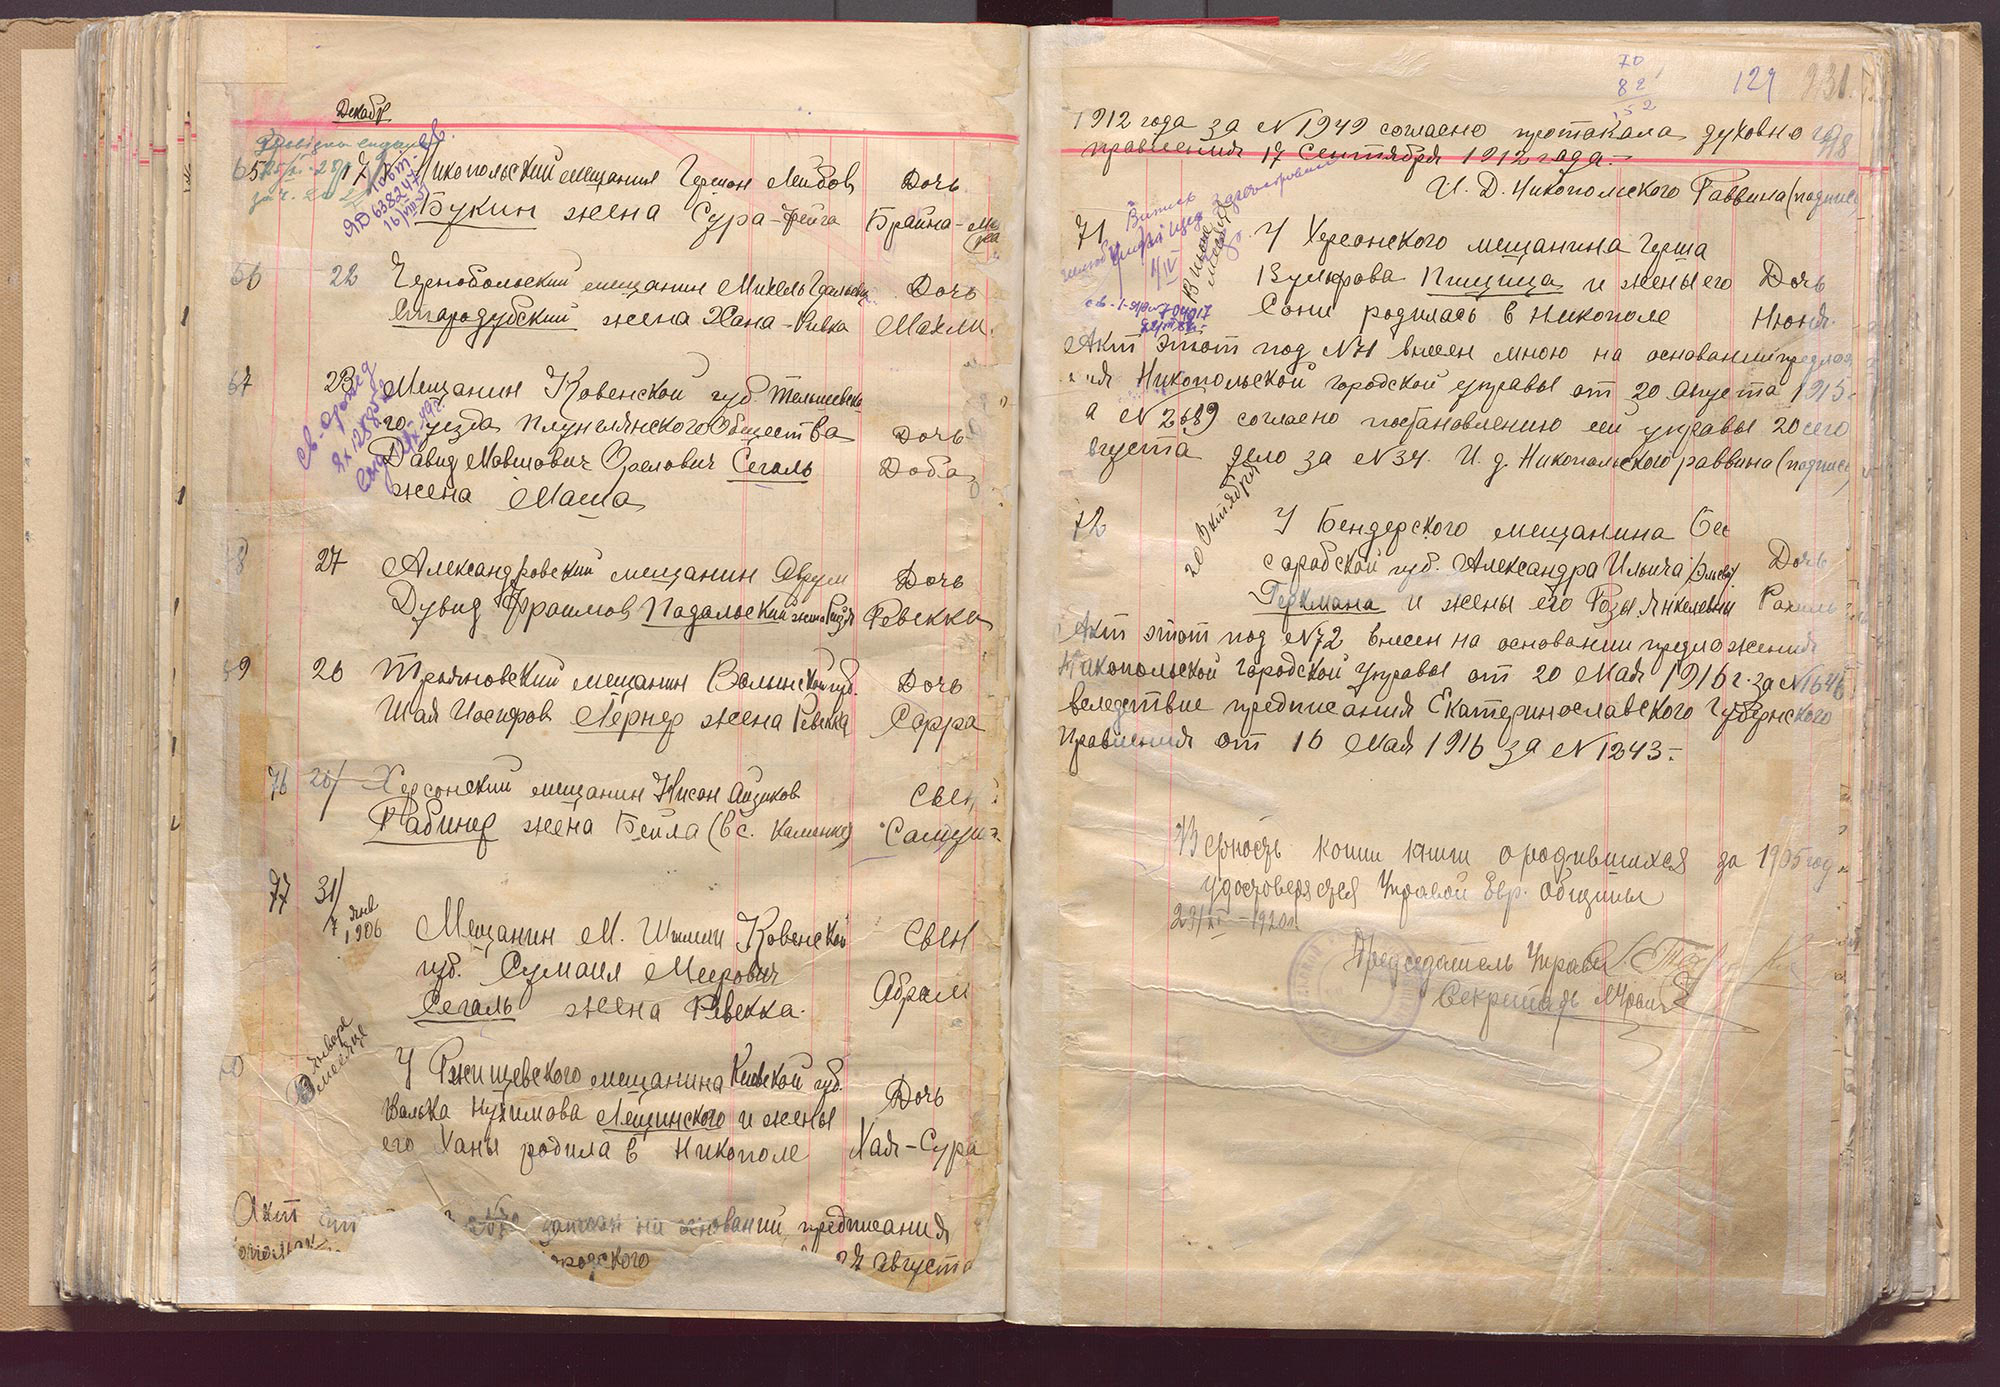 Декабр
65 17 Никопольский мещанин Гершон Лейбов Дочь
Букин жена Сура-Фейга Брайна-
ЯБ 638247
66 22 Чернобольский мещанин Михель Дочь
Стародубский жена Хана-Ривка Махли
67 23 Мещанин Ковенской губ. Тельшевско
го уезда Плунгянского Общества Дочь
Давид Мовшович Орелович Сегаль Доба
жена Маша
8 27 Александровский мещанин Аврум Дочь
Дувид Фроимов Падальский жена Ревекка
9 26 Трояновский мещанин Волынской губ. Дочь
Шая Иосифов Лернер жена Ревекка Сарра
76 28/ Херсонский мещанин Нисон Айзиков Свен
Рабинер жена Бейла (в с. Каменке) Самуил
77 31/
7 янв
1906
Мещанин М. Ковенской Свен
губ. Сумаил Меерович
Сегаль жена Ревекка. Абрам
В январе
месяце
У Ржищевского мещанина Киевской губ.
Волька Нухимова Лещинского и жены Дочь
его Ханы родила в Никополе Хая-Сура
Акт записан на основании предписания
ородского 24 августа
70
82
52
129 231.
1912 года за № 1949 согласно протакала духовного
правления 17 Сентября 1912 года.-
И. Д. Никопольского Раввина (подпись
71 У Херсонского мещанина Герша
Вульфова Пищица и жены его Дочь
Сони родилась в Никополе Нюня.
В июне
месяце
Акт этот под №71 внесен мною на основании предлож
ния Никопольской городской управы от 20 августа 1915
а № 2689 согласно постановлению ея управы 20 сего
вгуста дело за № 34. И. д. Никопольского раввина (подпись)
72 20 Октября У Бендерского мещанина Бес
сарабской губ. Александра Ильича Дочь
Геркмана и жены его Розы Янкелевны Рахиль
Акт этот под №72 внесен на основании предложения
Никопольской городской управы от 20 Мая 1916 г. за № 1646
вследствие предписания Екатеринославского Губернского
Правления от 16 Мая 1916 за № 1243.-
Верность копии книги о родившихся за 1905 год
удостоверяется Управой Евр. Общины
Председатель Управы
Секретарь